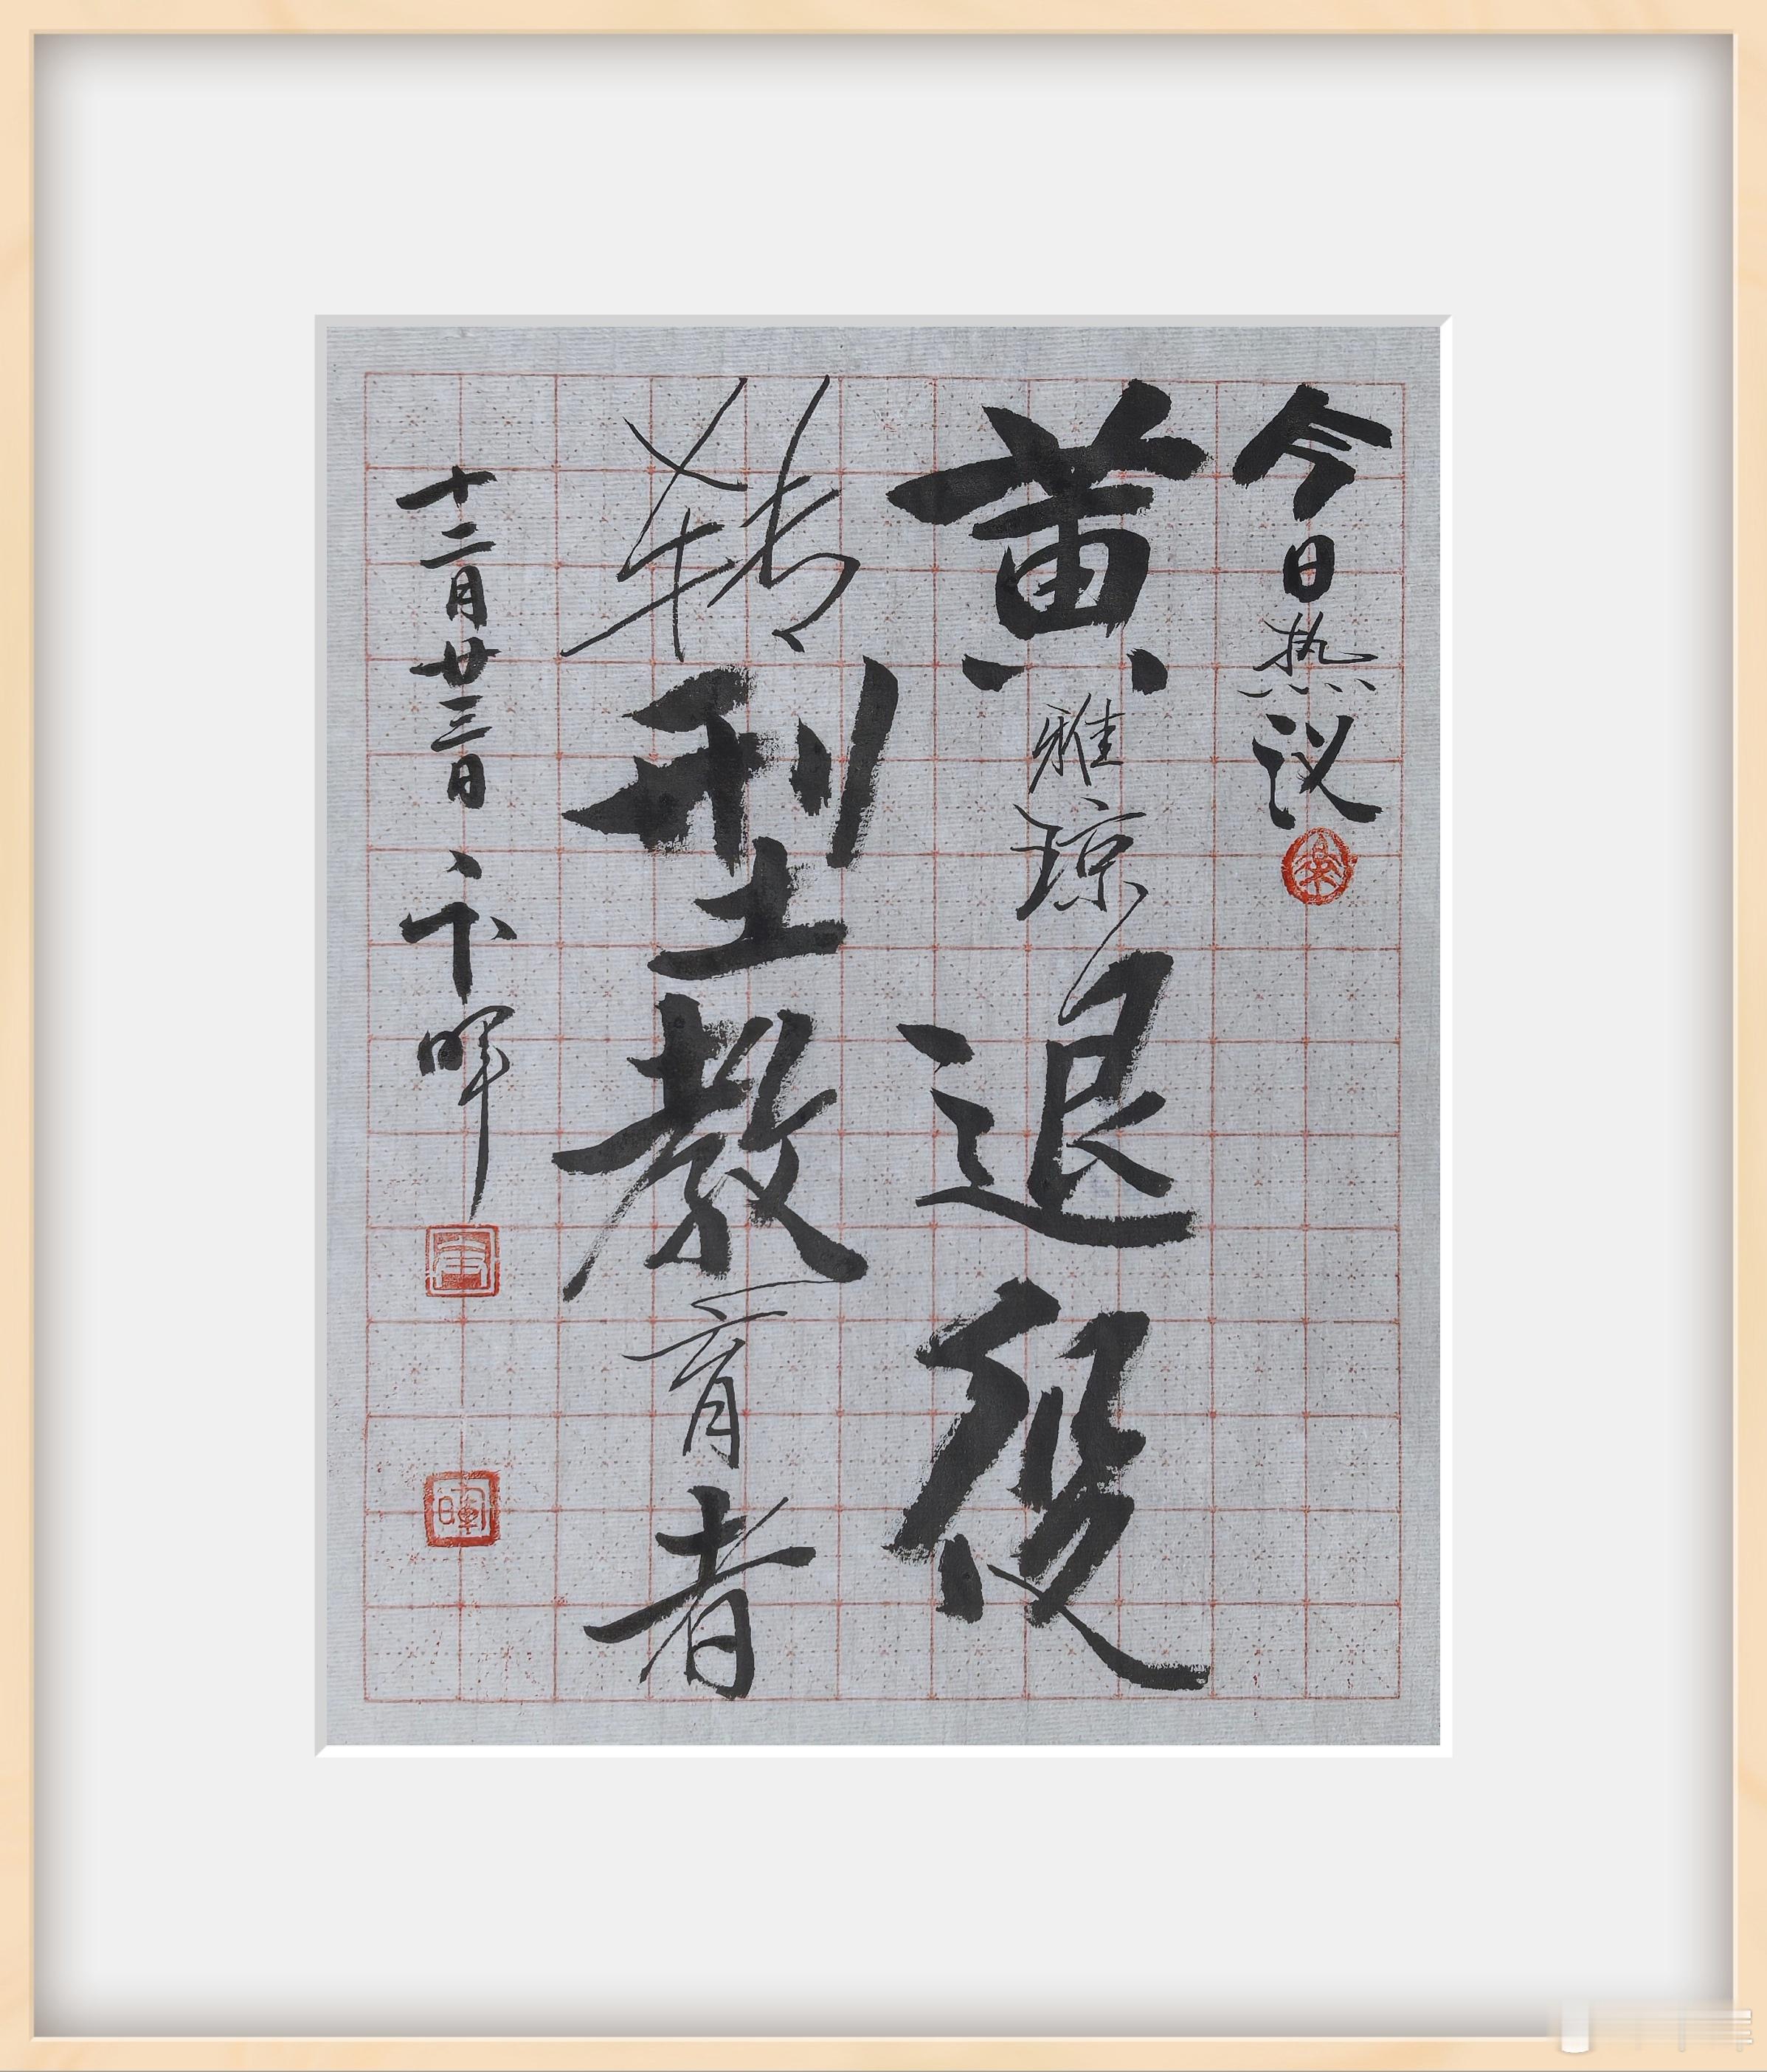 今日热议
黄雅琼退役
转型教育者
十二月廿三日 卞晖
晖